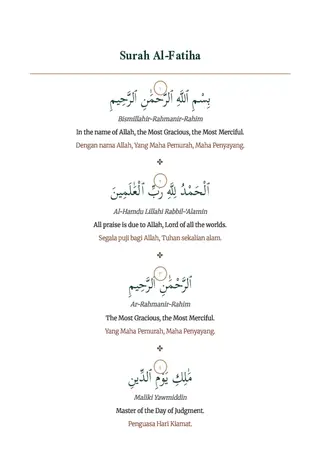 Surah Al-Fatiha
١
بِسْمِ ٱللَّهِ ٱلرَّحْمَٰنِ ٱلرَّحِيمِ
Bismillahir-Rahmanir-Rahim
In the name of Allah, the Most Gracious, the Most Merciful.
Dengan nama Allah, Yang Maha Pemurah, Maha Penyayang.
٢
ٱلْحَمْدُ لِلَّهِ رَبِّ ٱلْعَٰلَمِينَ
Al-Hamdu Lillahi Rabbil-'Alamin
All praise is due to Allah, Lord of all the worlds.
Segala puji bagi Allah, Tuhan sekalian alam.
٣
ٱلرَّحْمَٰنِ ٱلرَّحِيمِ
Ar-Rahmanir-Rahim
The Most Gracious, the Most Merciful.
Yang Maha Pemurah, Maha Penyayang.
مَٰلِكِ يَوْمِ ٱلدِّينِ
Maliki Yawmiddin
Master of the Day of Judgment.
Penguasa Hari Kiamat.